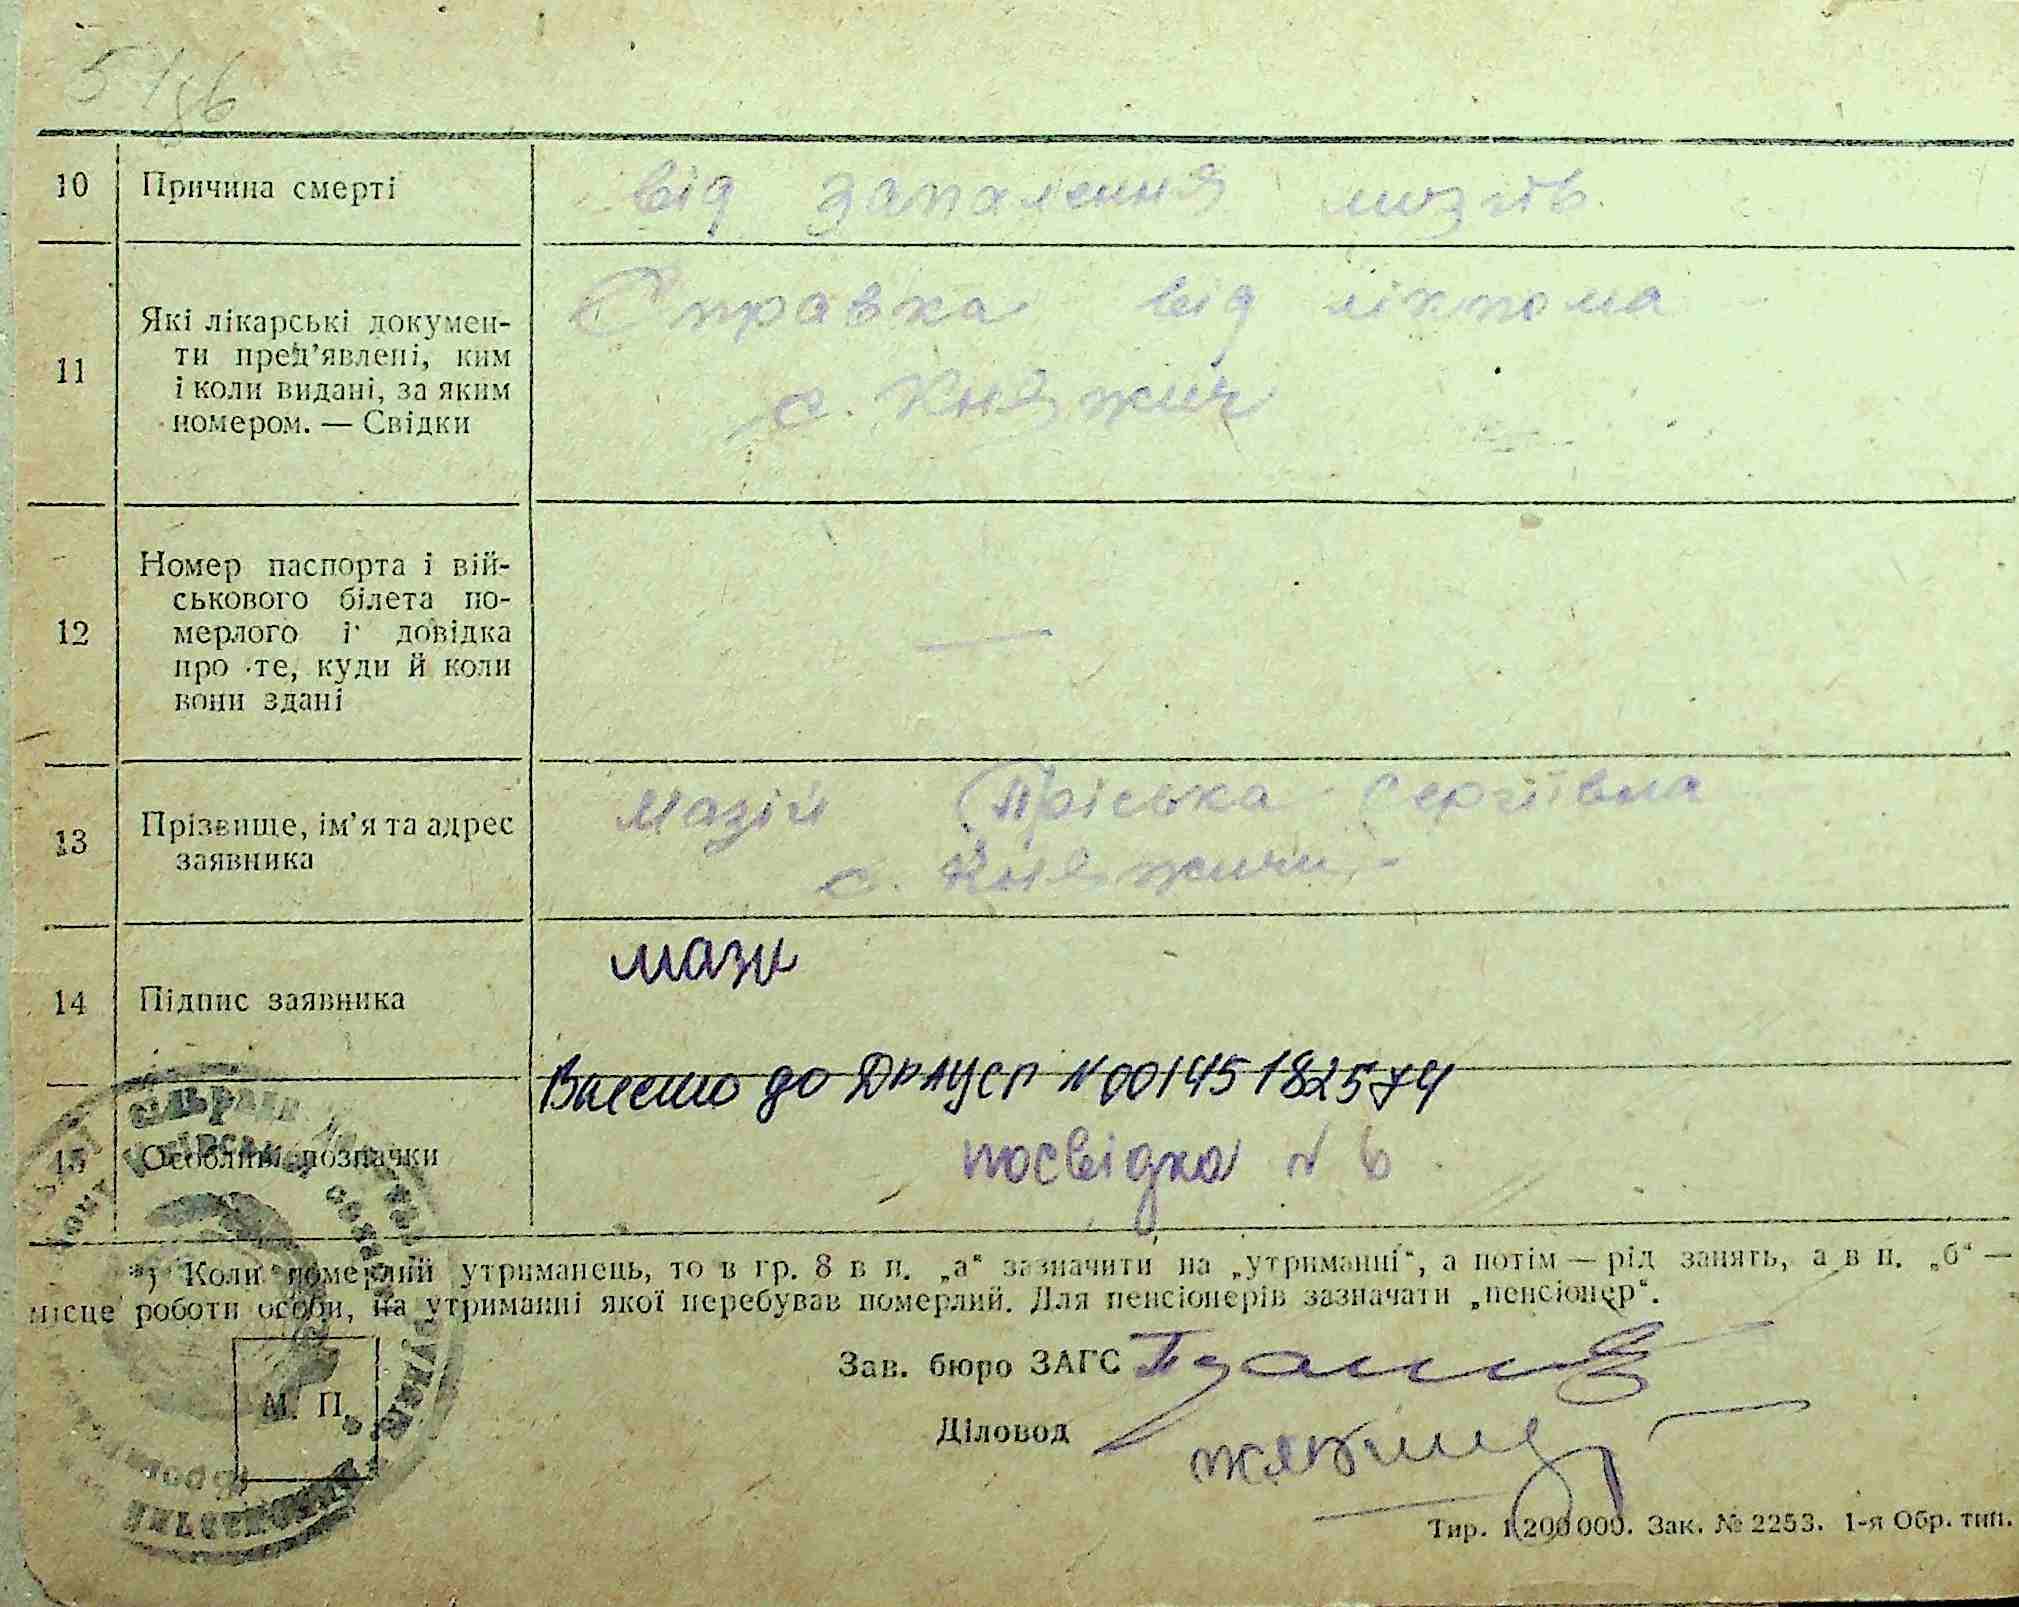 5
10 Причина смерті від запалення мозгів
11 Які лікарські докумен-
ти пред'явлені, ким
і коли видані, за яким
номером. — Свідки
Справка від лікпома
с. Княжич
12 Номер паспорта і вій-
ськового білета по-
мерлого і довідка
про те, куди й коли
вони здані
—
13 Прізвище, ім'я та адрес
заявника
Мазій Пріська Сергіївна
с. Княжичи
14 Підпис заявника
мази
Внесено до ДРАЦСГ №00145182574
15 Особливі позначки посвідка № 6
*) Коли померлий утриманець, то в гр. 8 в п. „а“ зазначити на „утриманні“, а потім — рід занять, а в п. „б“ —
місце роботи особи, на утриманні якої перебував померлий. Для пенсіонерів зазначати „пенсіонер“.
Зав. бюро ЗАГС
М. П.
Діловод
Тир. 1 200 000. Зак. № 2253. 1-я Обр. тип.